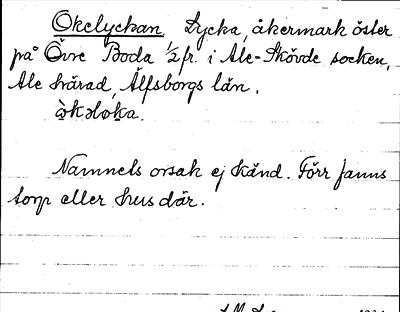 Okelyckan, Lycka, åkermark öster
på Övre Boda 1/2 fr. i Ale-Skövde socken,
Ale härad, Älfsborgs län.
Namnets orsak ej känd. Förr fanns
torp eller hus där.